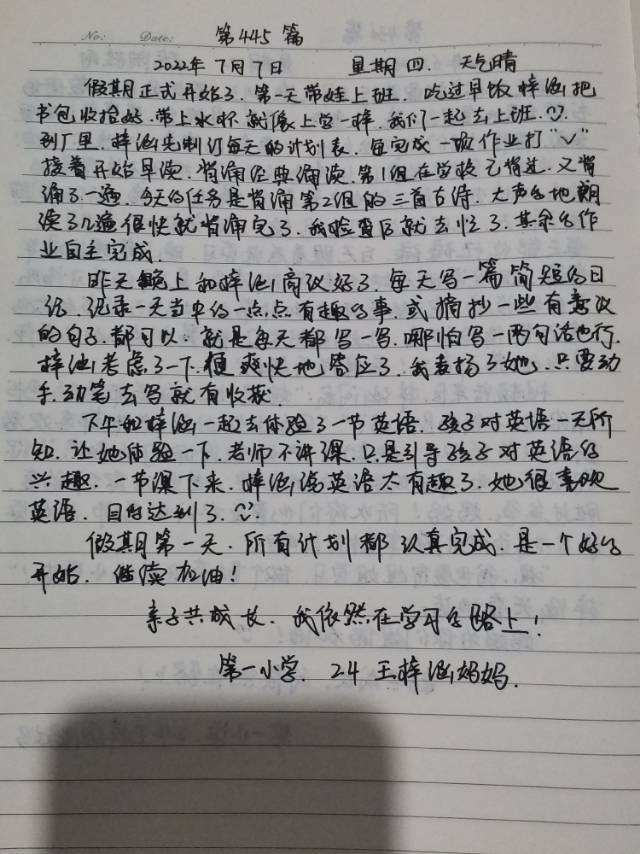 No:
Date:
第445篇
2022年7月7日 星期四 天气晴
假期正式开始了.第一天带娃上班.吃过早饭梓涵把
书包收拾好.带上水杯就像上学一样.我们一起去上班.
到厂里.梓涵先制订每天的计划表.每完成一项作业打“√”
接着开始早读.背诵经典诵读.第1组在学校已背过.又背
诵了一遍.今天的任务是背诵第2组的三首古诗.大声的地朗
读了几遍很快就背诵完了.我检查后就去忙了.其余的作
业自主完成.
昨天晚上和梓涵商议好了.每天写一篇简短的日
记.记录一天当中的一点点有趣的事.或摘抄一些有意义
的句子.都可以.就是每天都写一写.哪怕写一两句话也行.
梓涵考虑了一下.很爽快地答应了.我表扬了她.只要动
手.动笔去写就有收获.
下午和梓涵一起去体验了一节英语.孩子对英语一无所
知.让她体验一下.老师不讲课.只是引导孩子对英语的
兴趣.一节课下来.梓涵说英语太有趣了.她很喜欢
英语.目的达到了.
假期第一天.所有计划都认真完成.是一个好的
开始.继续加油!
亲子共成长.我依然在学习的路上!
第一小学.24王梓涵妈妈.